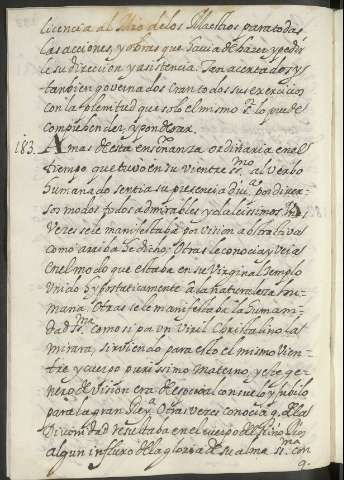 licencia al Mro de los Maestros para todas
las acciones, y obras que havia de hazer y pedir
le su direccion y asistencia. Tan acertados y
tanbien governados eran todos sus exercicios
con la plenitud que solo el mismo Sr. lo puede
comprehender, y ponderar.
183. A mas de esta enseñanza ordinaria en el
tiempo que tuvo en su vientre SSmo. al Verbo
humanado sentia su presencia diva. por diver-
sos modos todos admirables y dulcissimos. Unas
Veces se le manifestaba por vision abstractiva
como arriba se dicho; Otras le conocia y veia
en el modo que estaba en su Virginal Templo
Unido hypostaticamente a la naturaleza hu-
mana; Otras se le manifestaba la humani-
dad SSma. como si por un Viril Cristalino la
mirara, sirviendo para esto el mismo Vien-
tre y cuerpo purissimo materno, y este ge-
nero de vision era de especial consuelo y jubilo
para la gran Reyna. Otras veces conocia q. de la
Divinidad resultaba en el cuerpo del Niño Dios
algun influxo de la gloria de su alma SSma. con
q.